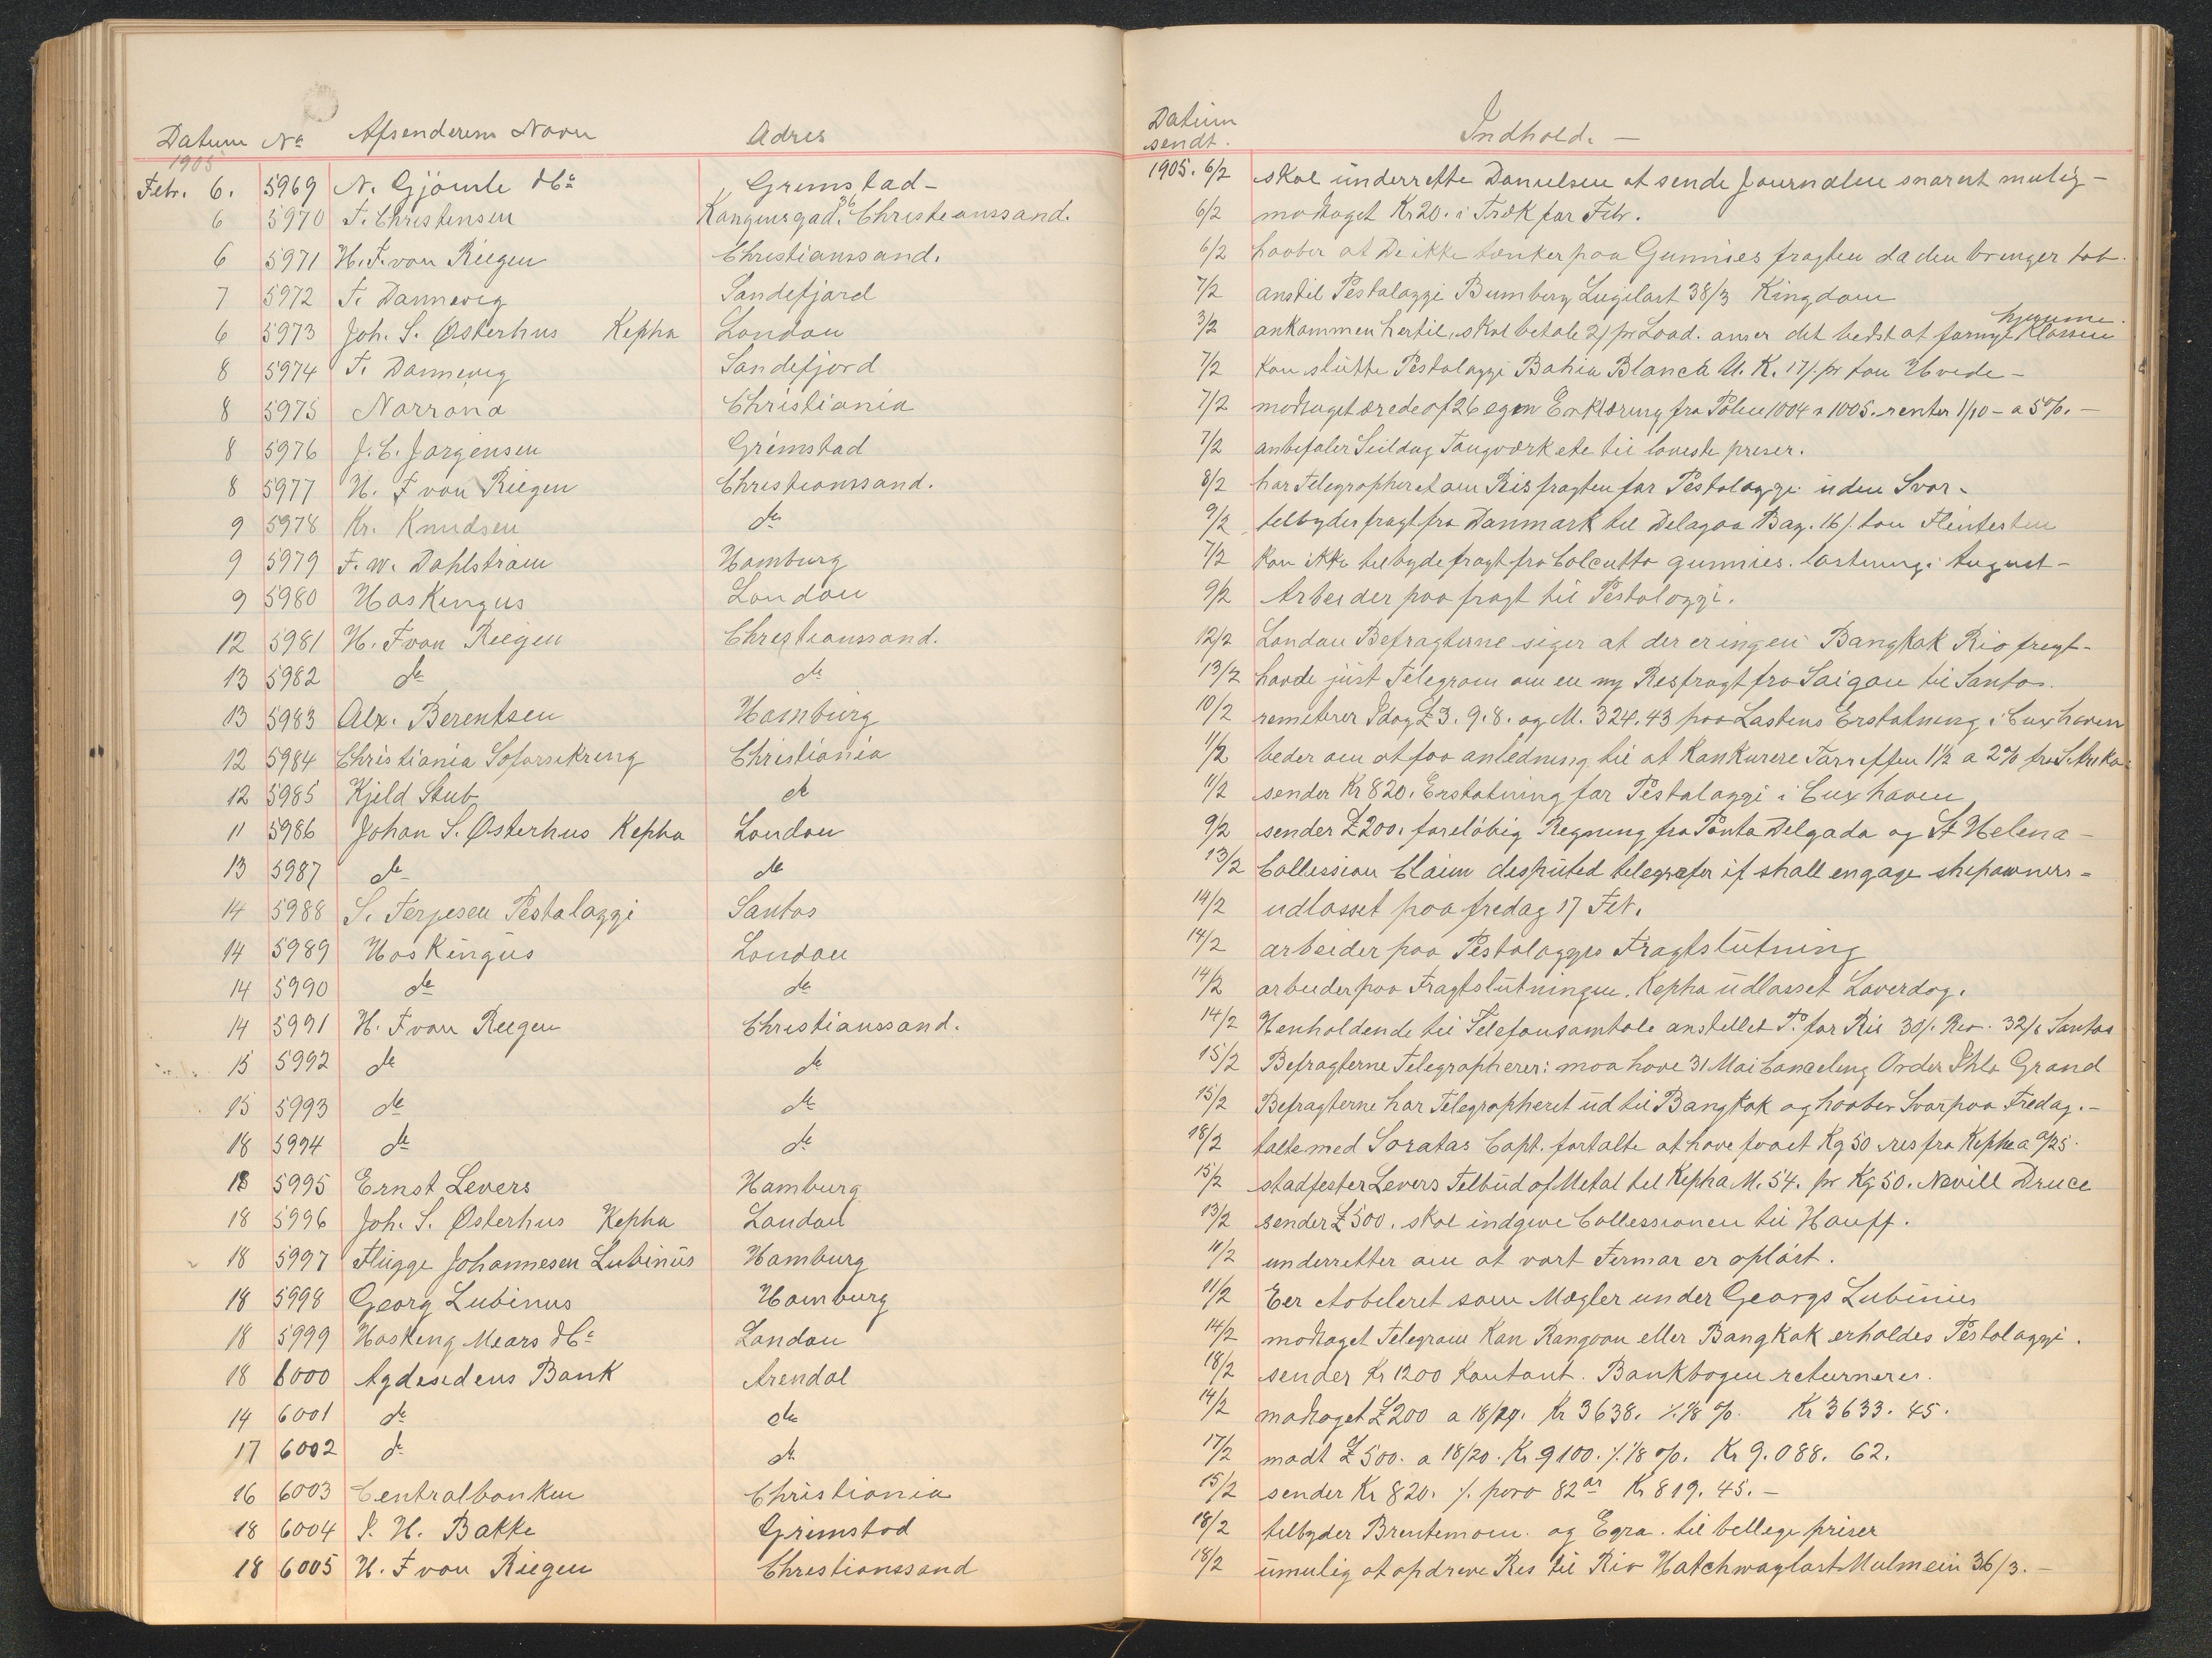 Datum No Afsenderens Navn Adres
1905
Febr. 6. 5969 N. Gjömle & Co Grimstad -
6 5970 F. Christensen Kongensgad. 36 Christianssand.
6 5971 H. F. von Riegen Christianssand.
7 5972 F. Dannevig Sandefjord
6 5973 Joh. S. Østerhus Kepha London
8 5974 F. Dannevig Sandefjord
8 5975 Norrona Christiania
8 5976 J. C. Jorgensen Grimstad
8 5977 H. F von Riegen Christianssand.
9 5978 Kr. Knudsen do
9 5979 F. W. Dahlström Hamburg
9 5980 Hoskingus London
12 5981 H. F von Riegen Christianssand.
13 5982 do do
13 5983 Alx. Berentsen Hamburg
12 5984 Christiania Soforsikring Christiania
12 5985 Kjeld Stub do
11 5986 Johan S. Østerhus Kepha London
13 5987 do do
14 5988 S. Terjesen Pestalozzi Santos
14 5989 Hoskingus London
14 5990 do do
14 5991 H. F von Riegen Christianssand.
15 5992 do do
15 5993 do do
18 5994 do do
18 5995 Ernst Levers Hamburg
18 5996 Joh. S. Østerhus Kepha London
18 5997 Flügge Johannesen Lubinus Hamburg
18 5998 Georg Lubinus Hamburg
18 5999 Hosking Mears & Co London
18 6000 Agdesidens Bank Arendal
14 6001 do do
17 6002 do do
16 6003 Centralbanken Christiania
18 6004 P. H. Bakke Grimstad
18 6005 H. F von Riegen Christianssand
Datum sendt. Indhold. -
1905. 6/2 skal underrette Danielsen at sende Journalen snarest mulig -
6/2 modtaget Kr 20. i Træk for Febr.
6/2 haaber at De ikke tænker paa Gunnies fragten da den bringer tab.
7/2 anstil Pestalozzi Bumbery Lugilast 38/3 Kingdom
3/2 ankommen hertil, skal betale 2/ pr Load. anser det bedst at fornye Klassen hjemme.
7/2 kan slutte Pestalozzi Bahia Blanca U. K. 17/. pr ton Hvede -
7/2 modtaget af 26 Erklæring fra Police 1004 a 1005. renter 1/10 - a 5%. -
7/2 anbefaler Seildug Tougværk etc til laveste preser.
8/2 har Telegrapheret om Risfragten for Pestalozzi uden Svar -
9/2 telbyder fragt fra Danmark til Delagoa Bay. 16/. ton Flintesten
7/2 kan ikke tilbyde fragt fra Calcutta gunnies. lastning i August -
9/2 Arbeider paa fragt til Pestalozzi.
12/2 London Befragterne siger at der er ingen Bangkok Rio fragt -
13/2 havde just Telegram om en ny Risfragt fra Saigon til Santos.
10/2 remiterer Idag £ 3. 9. 8. og M. 324.43 paa Lastens Erstatning i Cuxhaven
11/2 beder om at faa anledning til at Konkurere Tarreffen 1½ a 2% fra S. Afrika
11/2 sender Kr 820. Erstatning for Pestalozzi i Cuxhaven
9/2 sender £ 200. foreløbig Regning fra Ponta Delgada og St Helena -
13/2 Collission Claim desputed telegrafer if shall engage shipowners -
14/2 udlosset paa fredag 17 Feb.
14/2 arbeider paa Pestalozzis Fragtslutning
14/2 arbeider paa Fragtslutningen. Kepha udlosset Laverdag.
14/2 Henholdende til Telefonsamtale anstillet P. for Ris 30/. Rio. 32/6 Santos
15/2 Befragterne Telegrapherer: maa have 31 Mai Canceling Order Ihla Grand
15/2 Befragterne har Telegrapheret ud til Bangkok og haaber Svar paa Fredag. -
18/2 talte med Soratas Capt. fortalte at have faaet Kg 50 fra Kepha a
15/2 stadfester Levers Telbud af Metal til Kepha M. 54. pr Kg 50. Nevill Druce
13/2 sender £ 500. skal indgive Collessionen til Hauff.
11/2 underretter om at vort Firmar er opløst.
11/2 Eer etableret som Mægler under Georgs Lubinus
14/2 modtaget Telegram Kan Rangoon eller Bangkok erholdes Pestalozzi.
18/2 sender Kr 1200 kontant. Bankbogen returneres.
14/2 modtaget £ 200 a 18/19. Kr 3638. ⁒ 1/8 %. Kr 3633. 45.
17/2 modt £ 500. a 18/20. Kr 9100. ⁒ 1/8 %. Kr 9.088. 62.
15/2 sender Kr 820. ⁒ 82 Kr 819. 45. -
18/2 telbyder og Egra. til bellige priser
18/2 umulig at opdrive Ris til Rio Mulmein 36/3. -